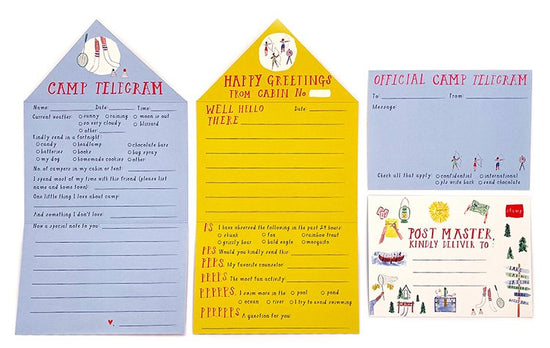 CAMP TELEGRAM
Name: Date: Time:
Current weather: sunny raining moon is out
so very cloudy blizzard
other
Kindly send in a fortnight:
candy headlamp chocolate bars
batteries books bug spray
my dog homemade cookies other
No. of campers in my cabin or tent:
I spend most of my time with this friend (please list
name and home town):
One little thing I love about camp:
And something I don't love:
Now a special note to you:
HAPPY GREETINGS
FROM CABIN No.
WELL HELLO
THERE
PS I have observed the following in the past 24 hours:
skunk fox rainbow trout
grizzly bear bald eagle mosquito
PPS Would you kindly send this:
PPPS. My favorite counselor:
PPPPS. The most fun activity:
PPPPPS. I swim more in the pool pond
ocean river I try to avoid swimming
PPPPPPS A question for you:
OFFICIAL CAMP TELEGRAM
To: From:
Message:
Check all that apply: confidential international
pls write back send chocolate
stamp
POST MASTER,
KINDLY DELIVER TO:
LAKE
LAKE